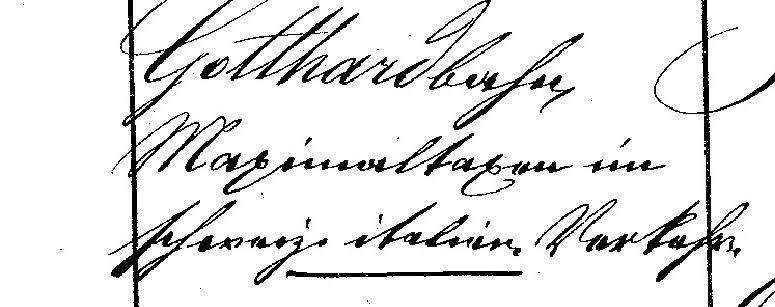 Gotthardbahn,
Maximaltaxen im
schweiz. italien. Verkehr.